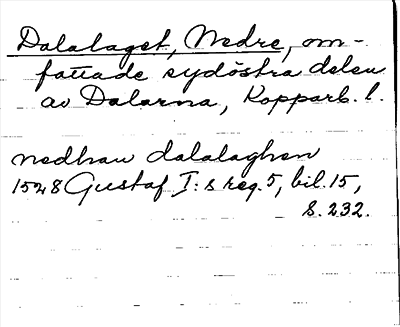 Dalalaget, Nedre, om-
fattade sydöstra delen
av Dalarna, Kopparb. l.
nedhan dalalaghen
1528 Gustaf I:s reg. 5, bil. 15,
S. 232.